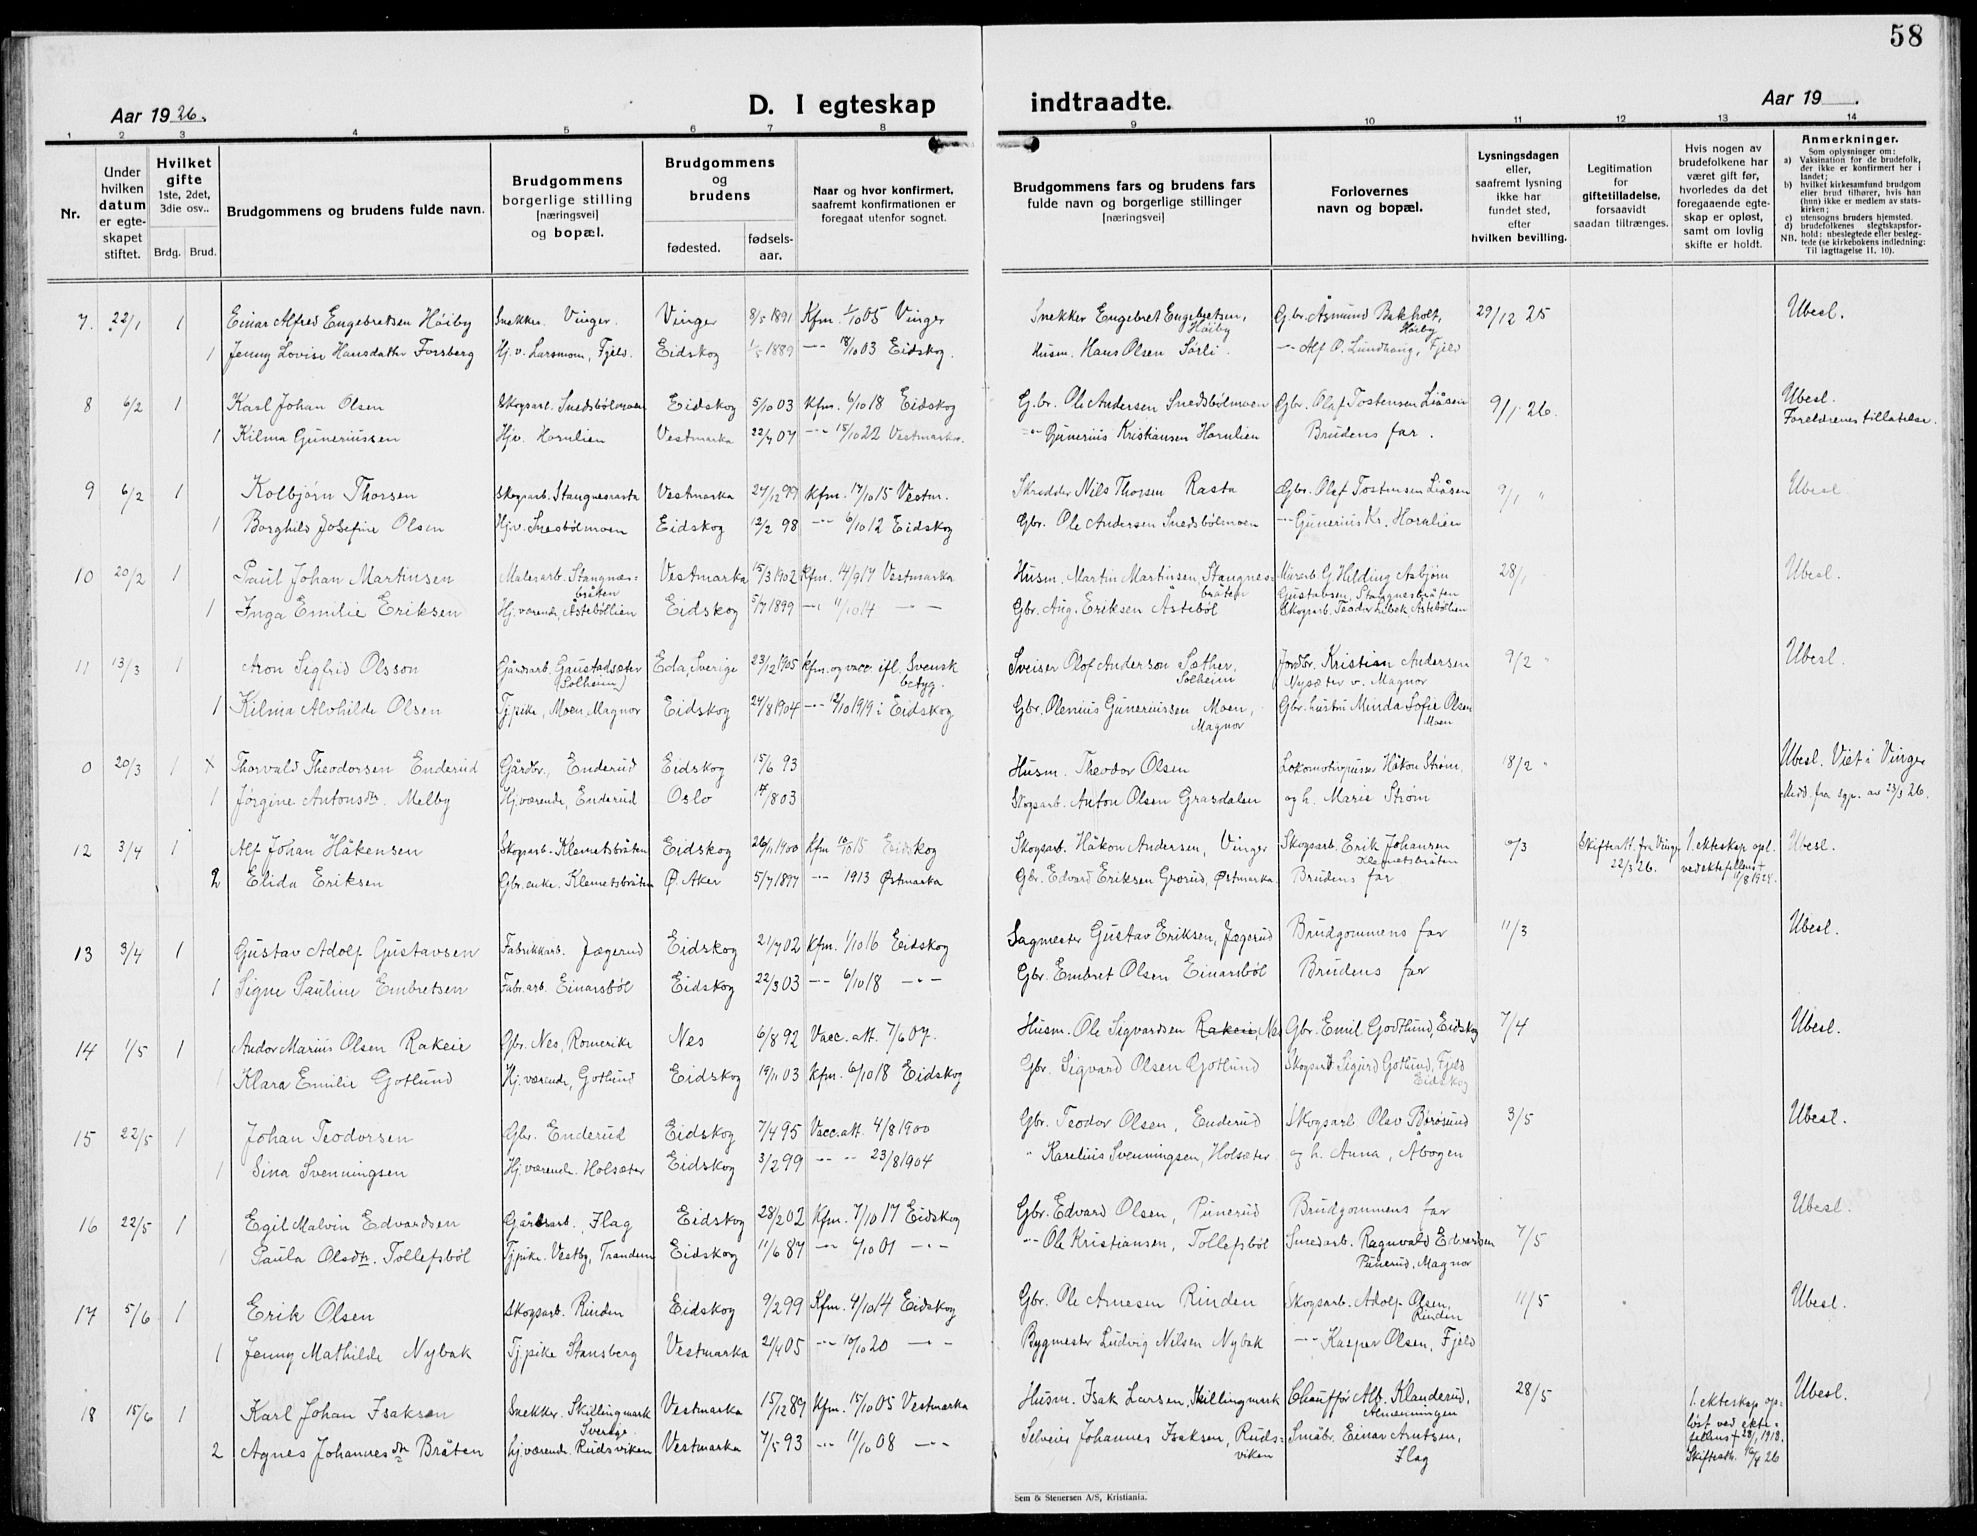 58
Aar 1926.
D. I egteskap
indtraadte.
Aar 19 .
1 2 3 4 5 6 7 8 9 10 11 12 13 14
Nr.
Under hvilken datum er egteskapet stiftet.
Hvilket gifte 1ste, 2det, 3die osv..
Brdg. Brud.
Brudgommens og brudens fulde navn.
Brudgommens borgerlige stilling [næringsvei] og bopæl.
Brudgommens og brudens
fødested.
fødsels-aar.
Naar og hvor konfirmert, saafremt konfirmationen er foregaat utenfor sognet.
Brudgommens fars og brudens fars fulde navn og borgerlige stillinger [næringsvei]
Forlovernes navn og bopæl.
Lysningsdagen eller, saafremt lysning ikke har fundet sted, efter hvilken bevilling.
Legitimation for giftetilladelse, forsaavidt saadan tiltrænges.
Hvis nogen av brudefolkene har været gift før, hvorledes da det foregaaende egteskap er opløst, samt om lovlig skifte er holdt.
Anmerkninger.
Som oplysninger om:
a) Vaksination for de brudefolk, der ikke er konfirmert her i landet;
b) hvilket kirkesamfund brudgom eller brud tilhører, hvis han (hun) ikke er medlem av statskirken;
c) utensogns bruders hjemsted.
d) brudefolkenes slegtskapsforhold: ubeslegtede eller beslegtede (se kirkebokens indledning: Til Iagttagelse 11. 10).
NB.
7. 22/1 1 Einar Alfred Engebretsen Høiby Snekker. Vinger. Vinger 8/5 1891 Kfm. 1/10 05 Vinger Snekker Engebret Engebretsen, Høiby Gbr. Åsmund Bakholt, Høiby 29/12 25 Ubesl.
1 Jenny Lovise Hansdatter Forsberg Hj. v. Larsmom, Fjeld. Eidskog 1/5 1889 -"- 18/10 03 Eidskog. Husm. Hans Olsen Sørli. -"- Alf O. Lundhaug, Fjeld
8 6/2 1 Karl Johan Olsen Skogsarb. Snedsbølmoen Eidskog 5/10 03 Kfm. 6/10 18 Eidskog G.br. Ole Andersen Snedsbølmoen Gbr. Olaf Tostensen Liåsen 9/1 26. Ubesl. Foreldrenes tillatelse.
1 Kilma Guneriussen Hjv. Hornlien Vestmarka 22/7 07 -"- 15/10 22 Vestmarka. -"- Gunerius Kristiansen Hornlien Brudens far.
9 6/2 1 Kolbjørn Thorsen Skogsarb. Stangnesrasta Vestmarka 27/12 99 Kfm. 17/10 15 Vestm. Skredder Nils Thorsen Rasta Gbr. Olaf Tostensen Liåsen 9/1 " Ubesl.
1 Borghild Josefine Olsen Hjv. Snesbølmoen Eidskog 12/2 98 -"- 6/10 12 Eidskog Gbr. Ole Andersen Snedsbølmoen -"- Gunerius Kr. Hornlien
10 20/2 1 Paul Johan Martinsen Malerarb. Stangnesbråten Vestmarka 15/3 1902 Kfm. 14/9 17 Vestmarka Husm. Martin Martinsen, Stangnesbråten Murerarb. G. Hilding Asbjørn Gustavsen, Stangnesbråten 28/1 Ubesl.
1 Inga Emilie Eriksen Hj. værende, Åstebøllien Eidskog 5/7 1899 -"- 11/10 14 -"- Gbr. Aug. Eriksen Åstebøl Skogsarb. Teodor Libek, Åstebøllien
11 13/3 1 Aron Sigfrid Olsson Gårdsarb. Gaustadsæter (Solheim) Eda, Sverige 23/12 1905 kfm. og vacc. ifl. Svensk betyg. Sveiser Olof Anderson Sæther, Solheim Jordbr. Kristian Andersen Nysæter v. Magnor 9/2 " Ubesl.
1 Kilma Alvhilde Olsen Tj.pike, Moen, Magnor Eidskog 24/8 1904 -"- 12/10 1919 i Eidskog Gbr. Olenius Guneriussen Moen, Magnor Gbr. hustru Minda Sofie Olsen Moen
0 20/3 1 x Thorvald Theodorsen Enderud Gårdbr., Enderud Eidskog 15/6 93 Husm. Theodor Olsen Lokomotivpusser Håkon Strøm, 18/2 " Ubesl. Viet i Vinger
1 Jørgine Antonsdtr. Melby Hj.værende, Enderud Oslo 17/8 03 Skogsarb. Anton Olsen Grasdalen og h. Marie Strøm Medd. fra sgpr. av 23/3 26.
12 3/4 1 Alf Johan Håkensen Skogsarb. Klemetsbråten Eidskog 26/11 1900 Kfm 10/10 15 Eidskog Skogsarb. Håkon Andersen, Vinger Skogsarb. Erik Johansen Klemetsbråten 10/3 Skifteatt. fra Vinger 22/3 26. 1. ekteskap opl. ved ektefellens + 11/8 1924. Ubesl.
2 Elida Eriksen Gbr. enke. Klemetsbråten Ø. Aker 5/7 1897 -"- 1913 Østmarka Gbr. Edvard Eriksen Grorud, Østmarka Brudens far
13 3/4 1 Gustav Adolf Gustavsen Fabrikkarb. Jægerud Eidskog 21/7 02 Kfm. 1/10 16 Eidskog Sagmester Gustav Eriksen, Jægerud Brudgommens far 11/3 Ubesl.
1 Signe Pauline Embretsen Fabr.arb. Einarsbøl Eidskog 22/3 03 -"- 6/10 18 -"- Gbr. Embret Olsen Einarsbøl Brudens far
14 1/5 1 Andor Marius Olsen Rakeie Gbr. Nes, Romerike Nes 6/8 92 Vacc. att. 7/6 07. Husm. Ole Sigvardsen Rakeie, Nes Gbr. Emil Godtlund, Eidskog 7/4 Ubesl.
1 Klara Emilie Gotlund Hj. værende, Gotlund Eidskog 19/11 03 Kfm. 6/10 18 Eidskog Gbr. Sigvard Olsen Gotlund Skogsarb Sigurd Gotlund, Fjeld Eidskog
15 22/5 1 Johan Teodorsen Gbr. Enderud Eidskog 7/4 95 Vacc. att. 4/8 1900 Gbr. Teodor Olsen, Enderud Skogsarb Olav Børøsund 3/5 Ubesl.
1 Sina Svenningsen Hj. værende. Holsæter Eidskog 3/2 99 -"- -"- 23/8 1904 " Karelius Svenningsen, Holsæter og h. Anna, Åbogen
16 22/5 1 Egil Malvin Edvardsen Gårdsarb. Flag Eidskog 28/2 02 Kfm. 7/10 17 Eidskog Gbr. Edvard Olsen, Punerud Brudgommens far 7/5 Ubesl.
1 Paula Olsdtr. Tollefsbøl Tj.pike. Vestby, Trandem Eidskog 11/6 87 -"- 6/10 01 -"- -"- Ole Kristiansen, Tollefsbøl Smedarb. Ragnvald Edvardsen Punerud, Magnor
17 5/6 1 Erik Olsen Skogsarb. Rinden Eidskog 9/2 99 Kfm. 4/10 14 Eidskog Gbr. Ole Arnesen Rinden Skogsarb. Adolf Olsen, Rinden 11/5 Ubesl.
1 Jenny Mathilde Nybak Tj.pike Stansberg Vestmarka 21/4 05 -"- 10/10 20 -"- Bygmester Ludvig Nilsen Nybak -"- Kasper Olsen, Fjeld
18 15/6 1 Karl Johan Isaksen Snekker. Skillingmark Sverige Vestmarka 15/12 89 Kfm. 15/10 05 Vestmarka Husm. Isak Larsen, Skillingmark Chauffør Alb. Klanderud, Almenningen 28/5 1. ekteskap opløst ved ektefellens + 28/1 1918. Skifteatt. 16/4 26 Ubesl.
2 Agnes Johannesdtr Bråten hj. værende. Rudsviken Vestmarka 7/5 93 -"- 11/10 08 -"- Selveier Johannes Isaksen, Rudsviken Småbr. Einar Arntsen, Flag
Sem & Stenersen A/S, Kristiania.